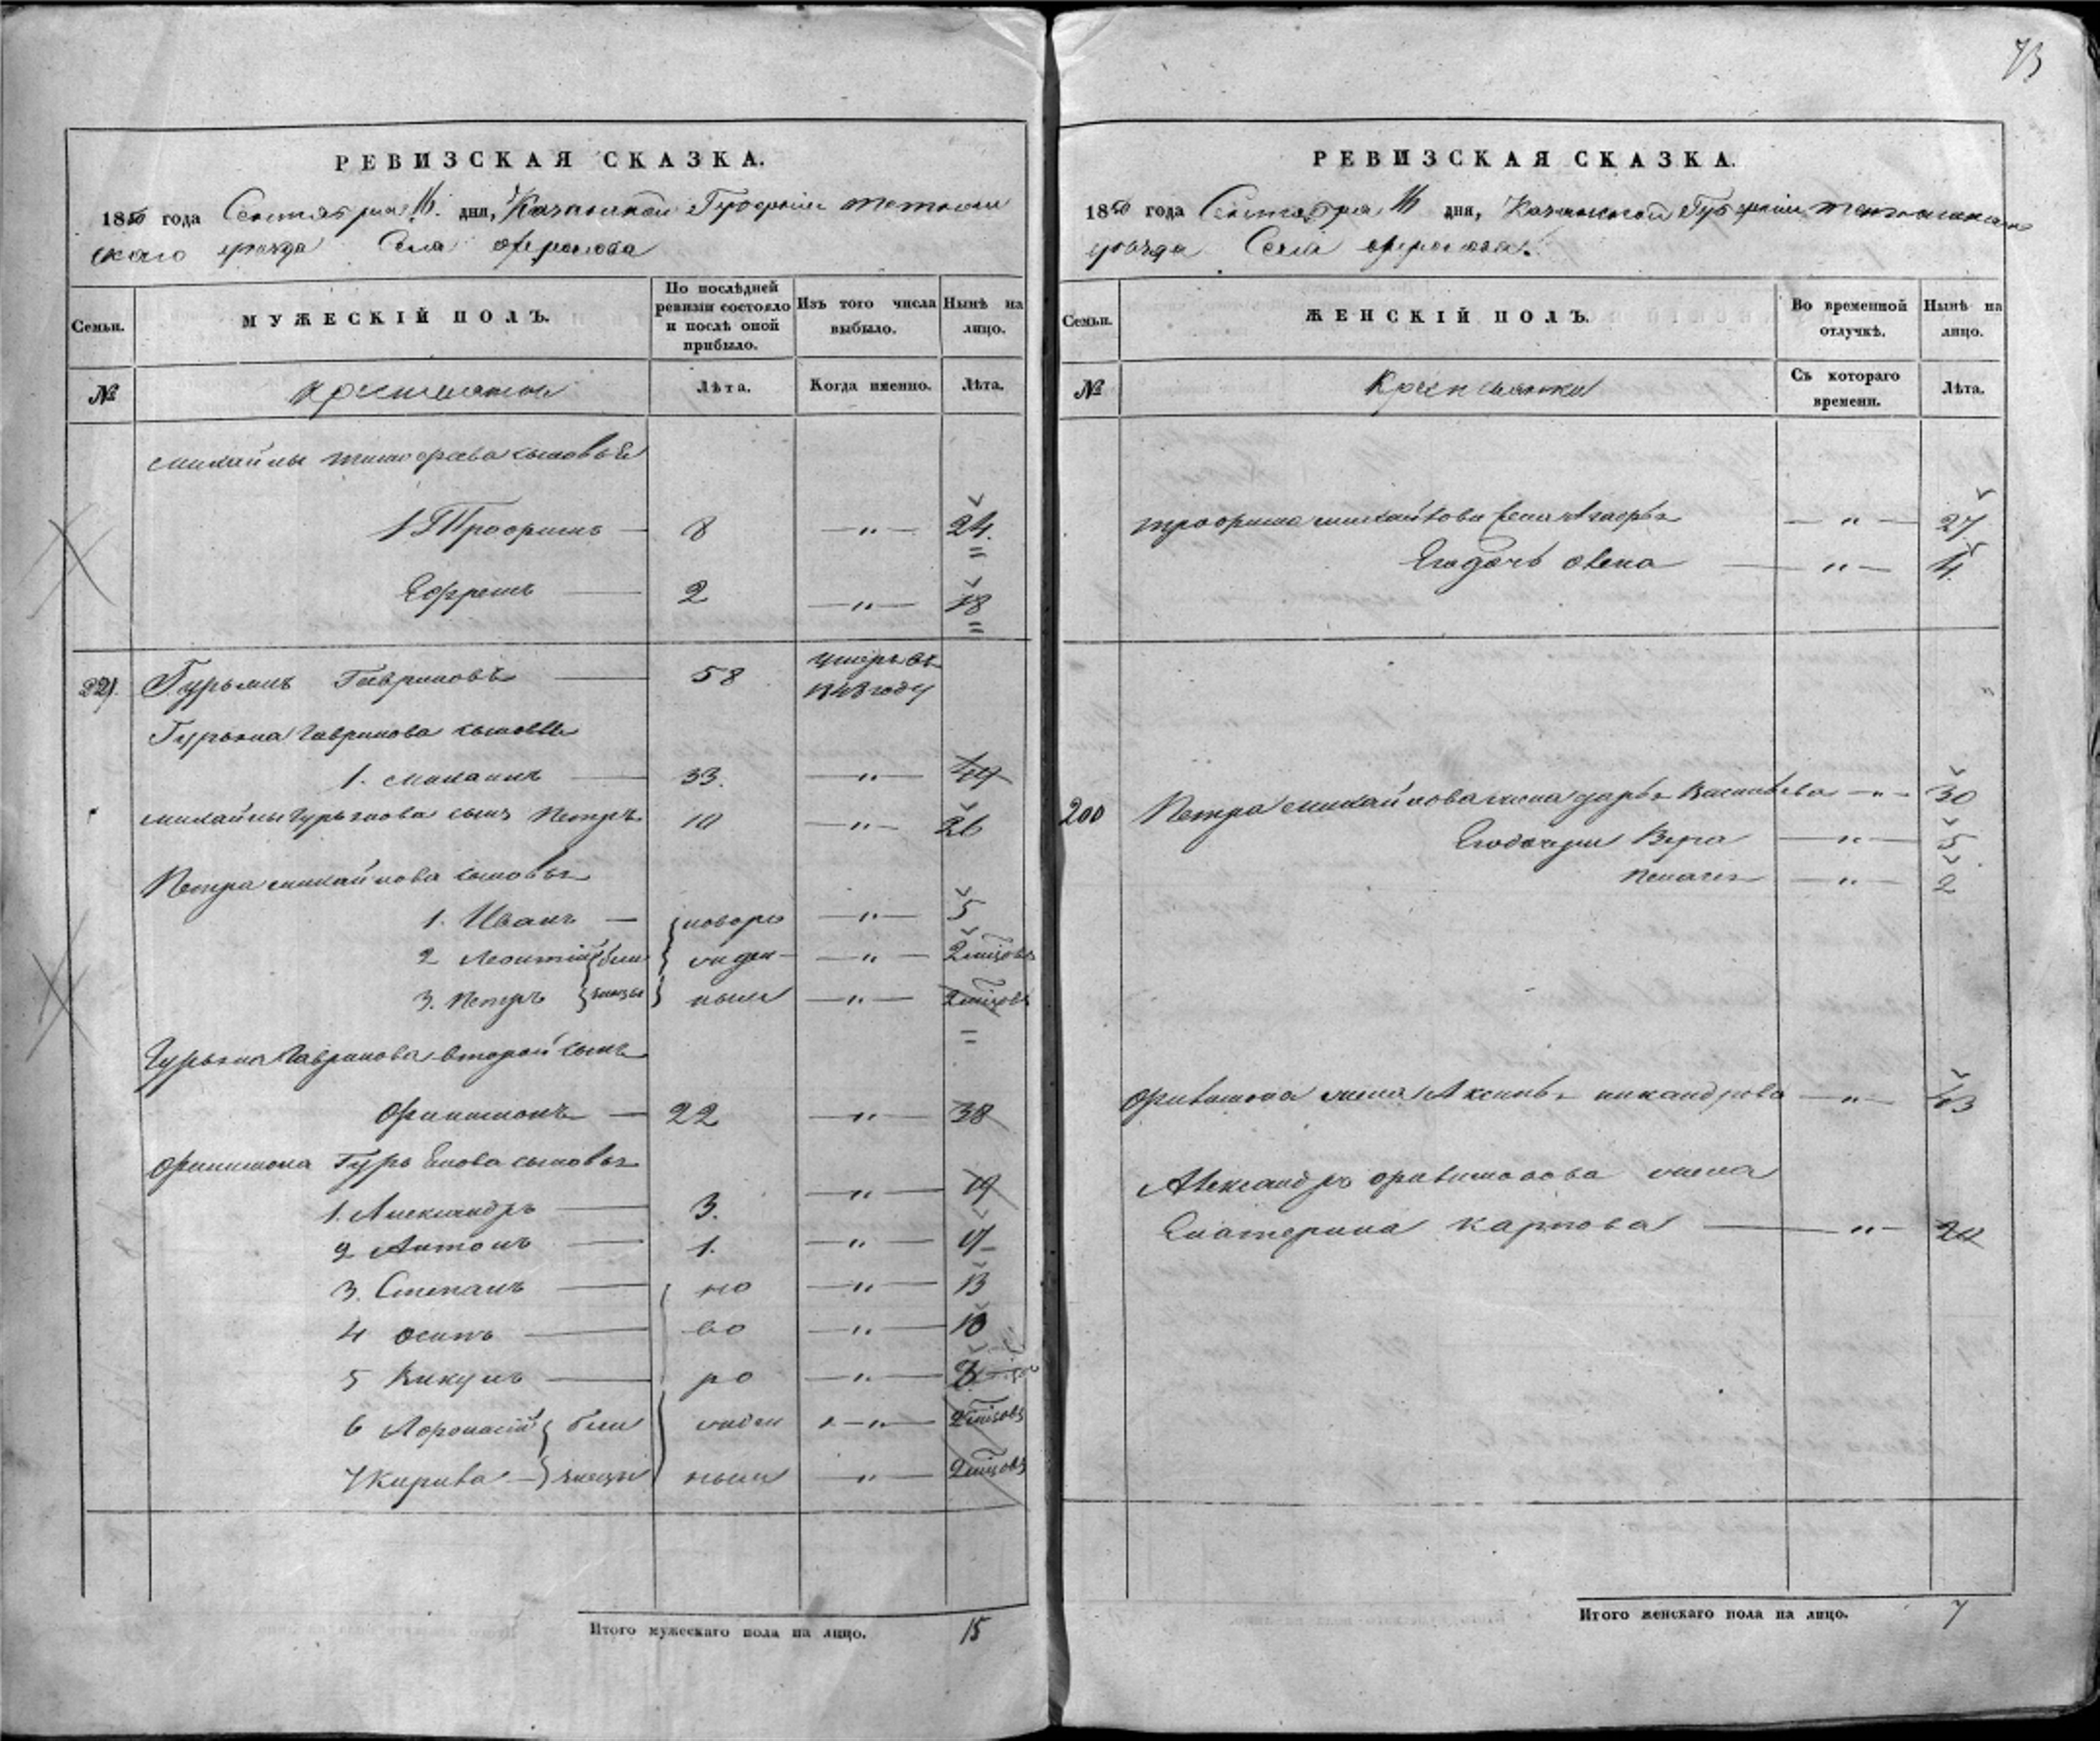 73
РЕВИЗСКАЯ СКАЗКА.
1850 года Сентября 16 дня, Казанской Губернии Тетюш
скаго уезда Села
Семьи.
МУЖЕСКІЙ ПОЛЪ.
По послѣдней ревизіи состояло и послѣ оной прибыло.
Изъ того числа выбыло.
Нынѣ на лицо.
№
Крестьяне
Лѣта.
Когда именно.
Лѣта.
Михайлы Тимофеева сыновья
1 Трофимъ — 8 — " — 24
Ефремъ — 2 — " — 18
221. Гурьянъ Гавриловъ — 58 умеръ въ 1843 году
Гурьяна Гаврилова сыновья
1. Михаилъ — 33. — " — 49
Михайлы Гурьянова сынъ Петръ 10 — " — 26
Петра Михайлова сыновья
1. Иванъ — новоро — " — 5
2 Леонтій близ жден — " — 2 мѣсовъ
3. Петръ нецы ныя — " — 2 мѣсовъ
Гурьяна Гаврилова второй сынъ
Филимонъ — 22 — " — 38
Филимона Гурьянова сыновья
1. Александръ — 3. — " — 19
2 Антонъ — 1. — " — 17
3. Степанъ — но — " — 13
4 Осипъ — во — " — 10
5 Викулъ — ро — " —
6 Афонасій близ жден — " — 2 мѣсовъ
7 Кирила — нецы ныя " — 2 мѣсовъ
Итого мужескаго пола на лицо. 15
РЕВИЗСКАЯ СКАЗКА.
1850 года Сентября 16 дня, Казанской Губернии Тетюшскаго
уезда Села
Семьи.
ЖЕНСКІЙ ПОЛЪ.
Во временной отлучкѣ.
Нынѣ на лицо.
№
Крестьянки
Съ котораго времени.
Лѣта.
Трофима Михайлова жена — " — 27
Его дочь — " — 4
200 Петра Михайлова жена Дарья Васильева — " — 30
Его дочери Вера — " — 5
Пелагея — " — 2
Филимона жена Аксинья Никандрова — " — 43
Александра Филимонова жена
Екатерина Карпова — " — 20
Итого женскаго пола на лицо. 7